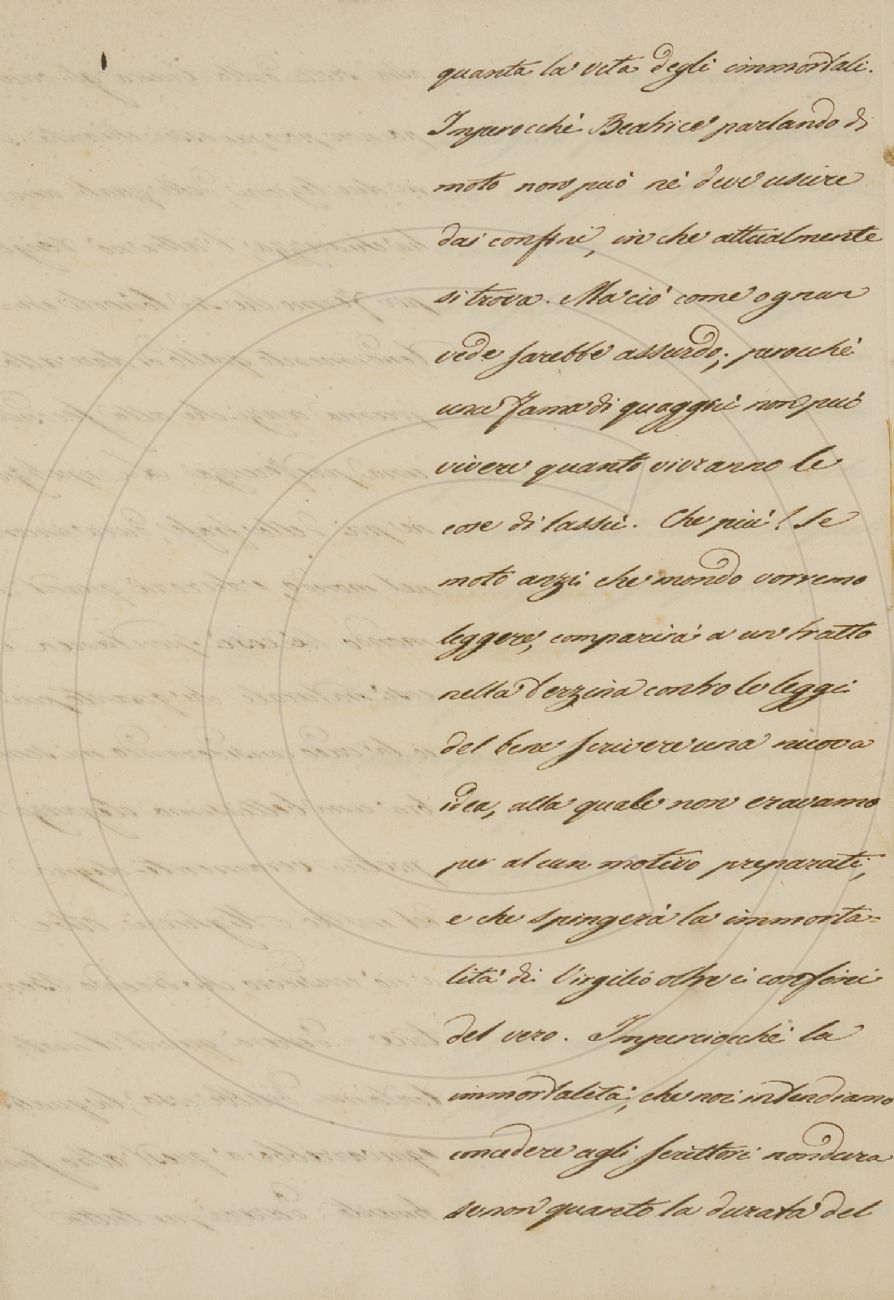 quanta la vita degli immortali.
Imperocchè Beatrice parlando di
moto non può nè deve uscire
dai confini, in che attualmente
si trova. Ma ciò come ognun
vede sarebbe assurdo; perocchè
una fama di quaggiù non può
vivere quanto vivranno le
cose di lassù. Che più? Se
moto anzi che mondo vorremo
leggere, comparirà a un tratto
nella terzina contro le leggi
del bene scrivere una nuova
idea, alla quale non eravamo
per alcun motivo preparati,
e che spingerà la immorta=
lità di Virgilio oltre i confini
del vero. Imperciocchè la
immortalità, che noi intendiamo
concedere agli scrittori non dura
se non quanto la durata del